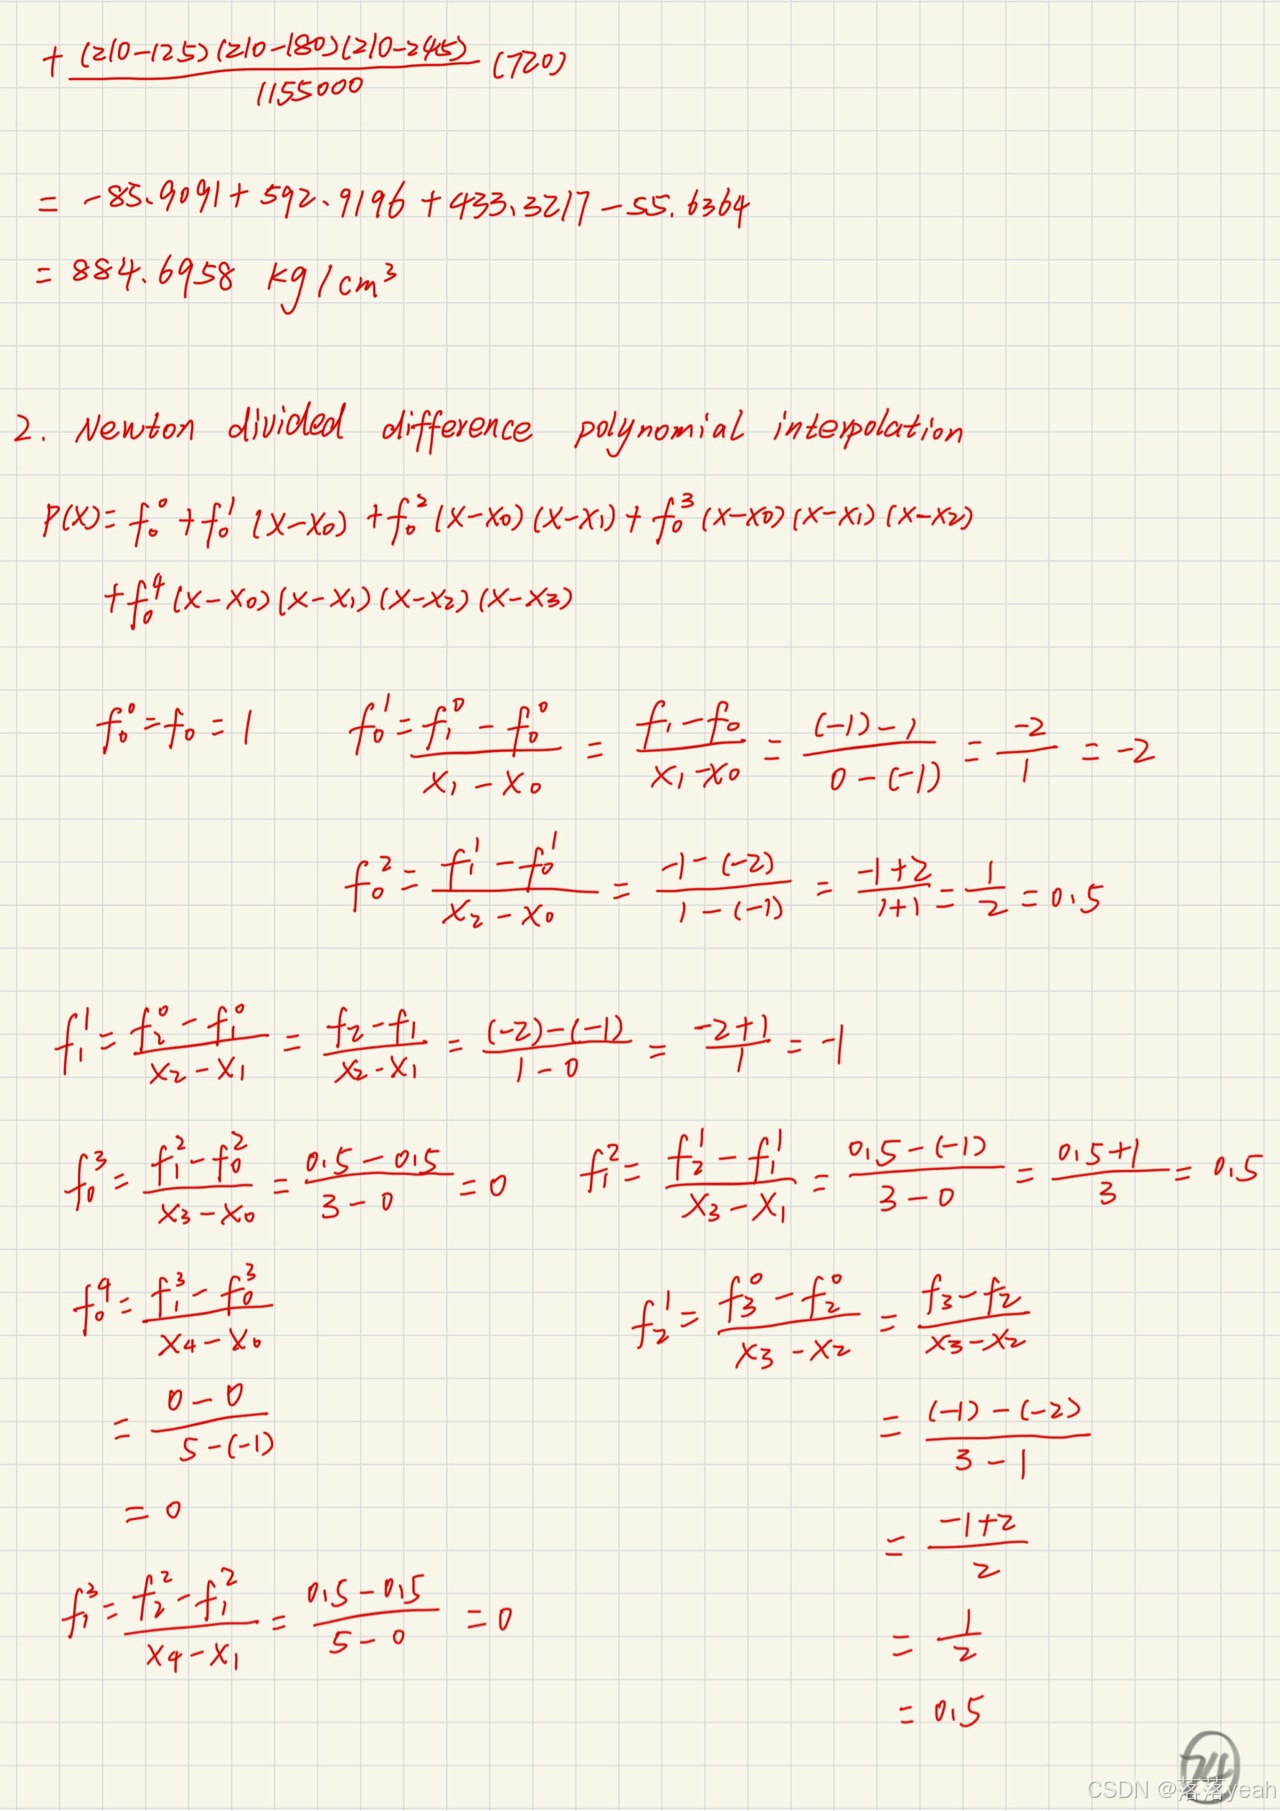 + (210-125)(210-180)(210-245) / 1155000 (720)
= -85.9091 + 592.9196 + 433.3217 - 55.6364
= 884.6958 kg/cm³
2. Newton divided difference polynomial interpolation
P(X) = f₀⁰ + f₀¹ (X-X₀) + f₀² (X-X₀)(X-X₁) + f₀³ (X-X₀)(X-X₁)(X-X₂)
+ f₀⁴ (X-X₀)(X-X₁)(X-X₂)(X-X₃)
f₀⁰ = f₀ = 1 f₀¹ = (f₁⁰ - f₀⁰)/(X₁ - X₀) = (f₁ - f₀)/(X₁ - X₀) = ((-1) - 1)/(0 - (-1)) = -2/1 = -2
f₀² = (f₁¹ - f₀¹)/(X₂ - X₀) = (-1 - (-2))/(1 - (-1)) = (-1+2)/(1+1) = 1/2 = 0.5
f₁¹ = (f₂⁰ - f₁⁰)/(X₂ - X₁) = (f₂ - f₁)/(X₂ - X₁) = ((-2) - (-1))/(1 - 0) = (-2+1)/1 = -1
f₀³ = (f₁² - f₀²)/(X₃ - X₀) = (0.5 - 0.5)/(3 - 0) = 0 f₁² = (f₂¹ - f₁¹)/(X₃ - X₁) = (0.5 - (-1))/(3 - 0) = (0.5+1)/3 = 0.5
f₀⁴ = (f₁³ - f₀³)/(X₄ - X₀) f₂¹ = (f₃⁰ - f₂⁰)/(X₃ - X₂) = (f₃ - f₂)/(X₃ - X₂)
= (0 - 0)/(5 - (-1)) = ((-1) - (-2))/(3 - 1)
= 0 = (-1+2)/2
f₁³ = (f₂² - f₁²)/(X₄ - X₁) = (0.5 - 0.5)/(5 - 0) = 0 = 1/2
= 0.5
CSDN @落落yeah